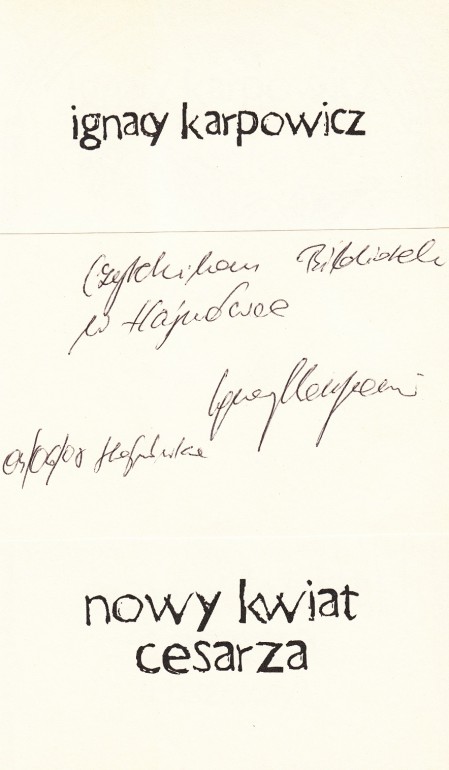 ignacy karpowicz
Czytelnikom Biblioteki
w Hajnówce
Ignacy Karpowicz
Hajnówka
nowy kwiat
cesarza